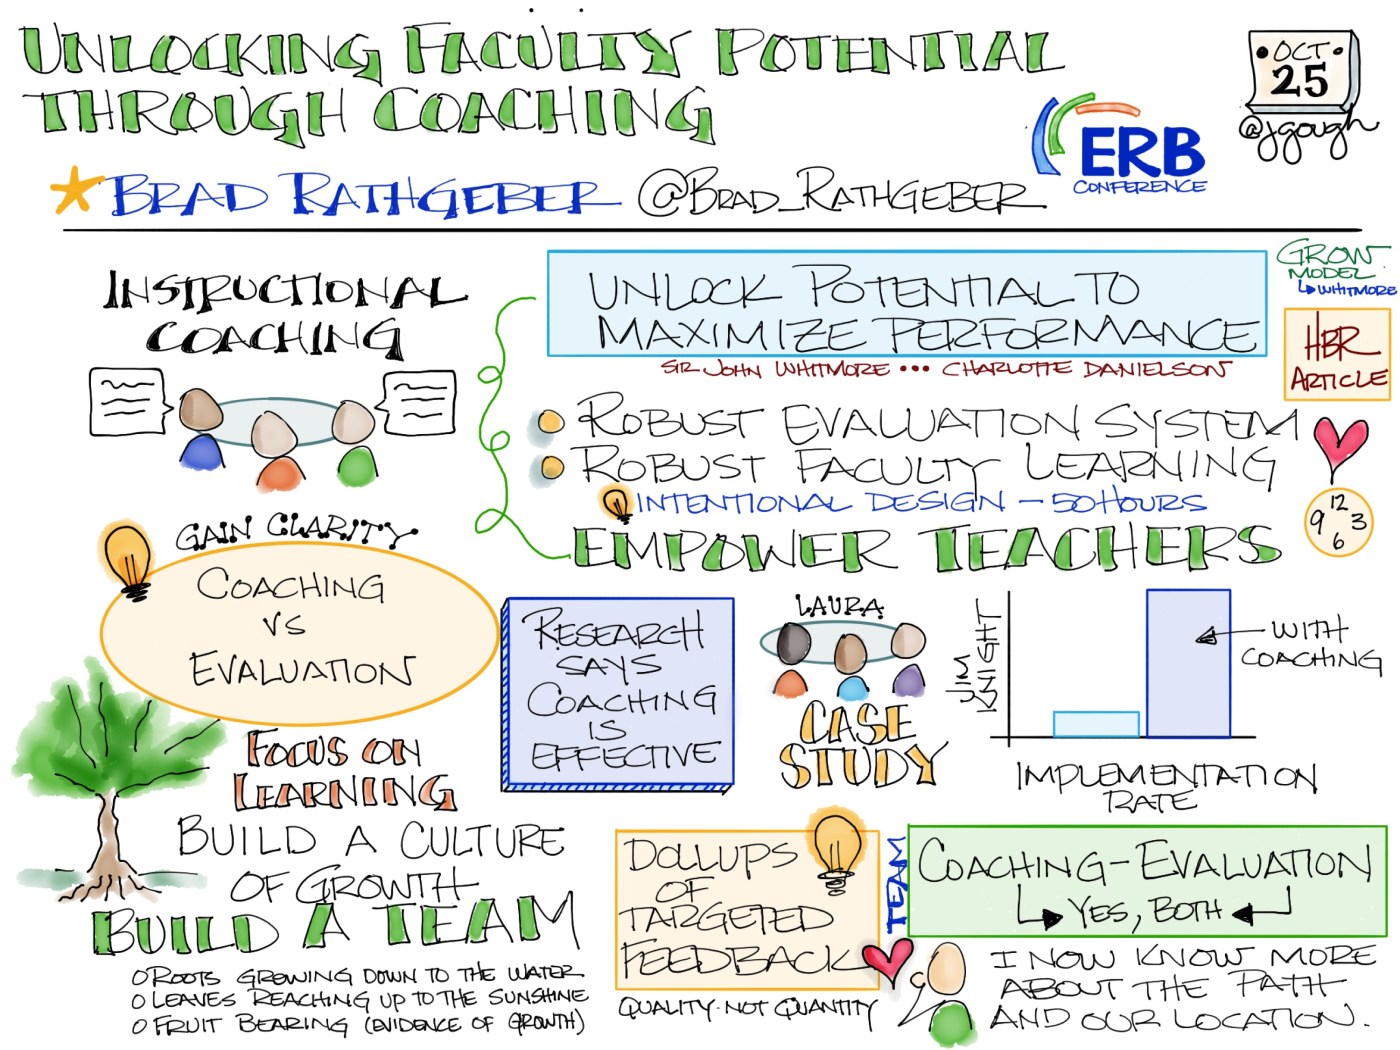 UNLOCKING FACULTY POTENTIAL
THROUGH COACHING
OCT
25
@jgough
ERB
CONFERENCE
BRAD RATHGEBER @BRAD_RATHGEBER
INSTRUCTIONAL
COACHING
UNLOCK POTENTIAL TO
MAXIMIZE PERFORMANCE
SIR JOHN WHITMORE ••• CHARLOTTE DANIELSON
GROW
MODEL
WHITMORE
HBR
ARTICLE
ROBUST EVALUATION SYSTEM
ROBUST FACULTY LEARNING
INTENTIONAL DESIGN - 50 HOURS
EMPOWER TEACHERS
12
9 3
6
GAIN CLARITY
COACHING
VS
EVALUATION
FOCUS ON
LEARNING
RESEARCH
SAYS
COACHING
IS
EFFECTIVE
LAURA
CASE
STUDY
JIM
KNIGHT
WITH
COACHING
IMPLEMENTATION
RATE
BUILD A CULTURE
OF GROWTH
BUILD A TEAM
O ROOTS GROWING DOWN TO THE WATER
O LEAVES REACHING UP TO THE SUNSHINE
O FRUIT BEARING (EVIDENCE OF GROWTH)
DOLLUPS
OF
TARGETED
FEEDBACK
QUALITY NOT QUANTITY
TEAM
COACHING-EVALUATION
YES, BOTH
I NOW KNOW MORE
ABOUT THE PATH
AND OUR LOCATION.